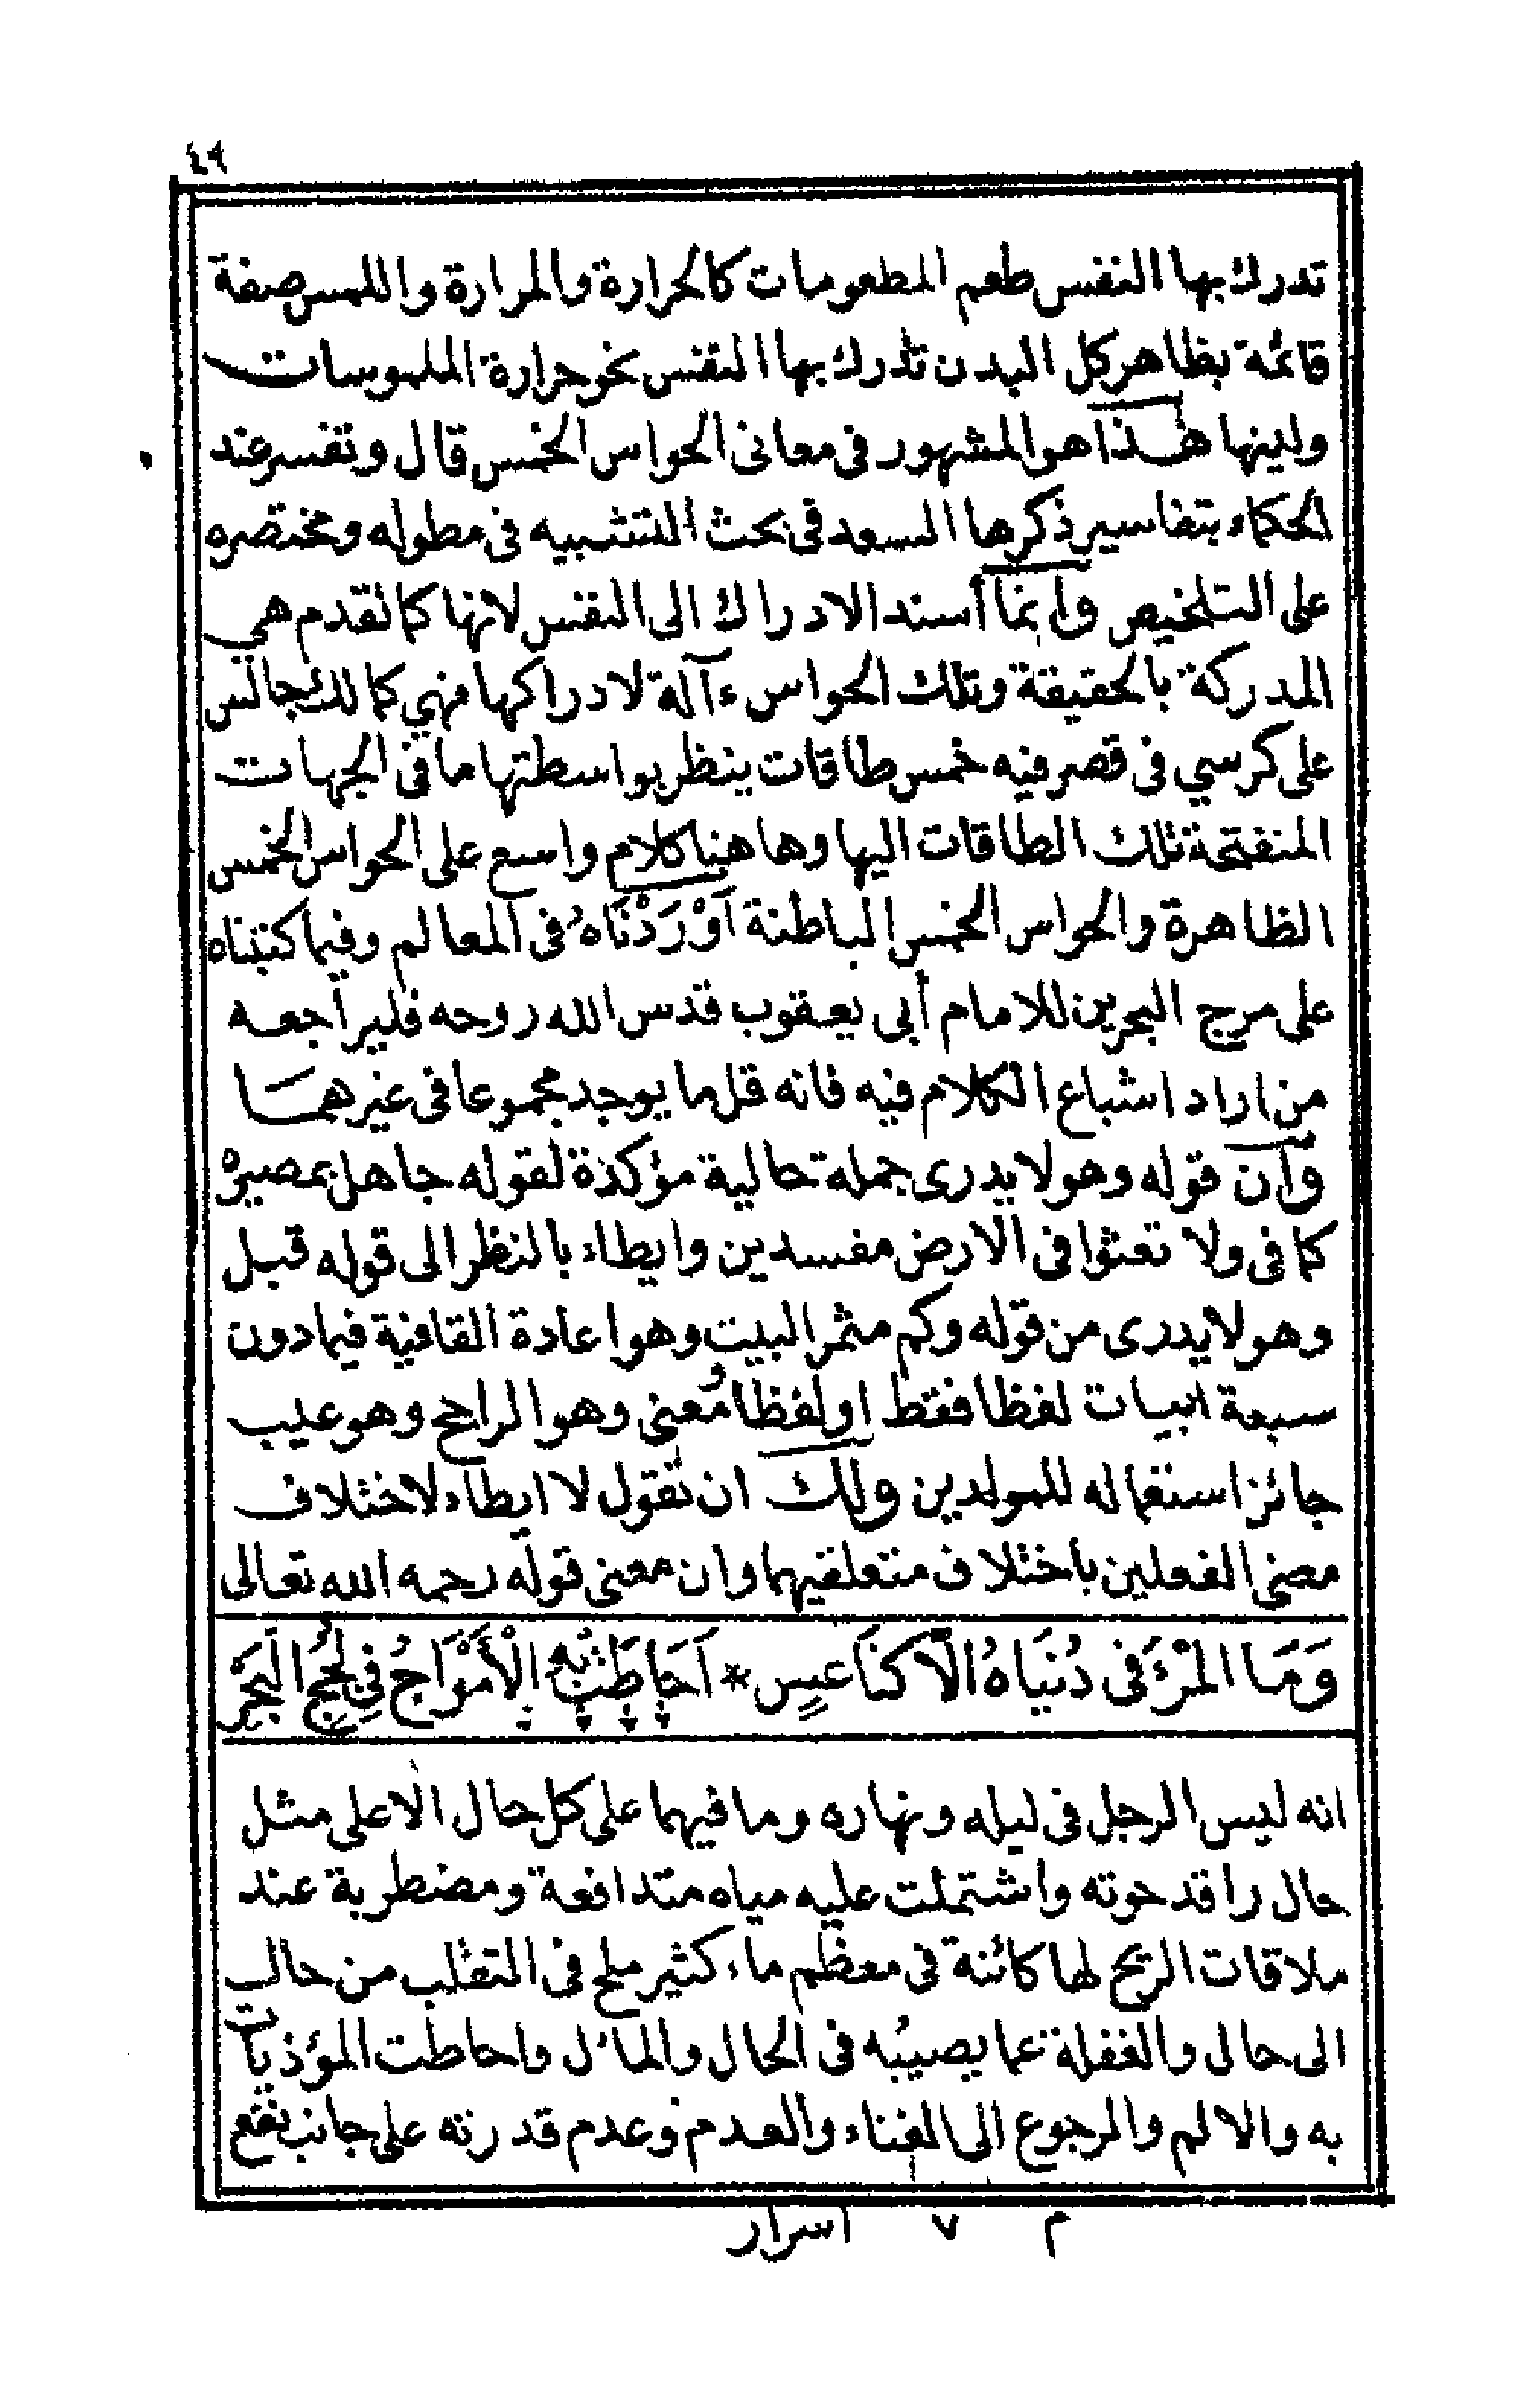 ٤٩
تدرك بها النفس طعم المطعومات كالحرارة والمرارة واللمس صفة
قائمة بظاهر كل البدن تدرك بها النفس نحو حرارة الملموسات
ولينها هذا هو المشهور فى معانى الحواس الخمس قال وتفسر عند
الحكماء بتفاسير ذكرها السعد فى بحث التشبيه فى مطوله ومختصره
على التلخيص وانما أسند الادراك الى النفس لانها كما تقدم هي
المدركة بالحقيقة وتلك الحواس ءآلة لادراكها فهي كمالك جالس
على كرسي فى قصر فيه خمس طاقات ينظر بواسطتها ما فى الجهات
المنفتحة تلك الطاقات اليها وهاهنا كلام واسع على الحواس الخمس
الظاهرة والحواس الخمس الباطنة اَوْرَدْنَاهُ فى المعالم وفيما كتبناه
على مرج البحرين للامام أبى يعقوب قدس الله روحه فليراجعه
من اراد اشباع الكلام فيه فانه قل ما يوجد مجموعا فى غيرهما
وان قوله وهو لا يدرى جملة حالية مؤكدة لقوله جاهل بمصيره
كما فى ولا تعثوا فى الارض مفسدين وايطاء بالنظر الى قوله قبل
وهو لا يدرى من قوله وكم مثمر البيت وهو اعادة القافية فيما دون
سبعة ابيات لفظا فقط او لفظا ومعنى وهو الراجح وهو عيب
جائز استعماله للمولدين ولك ان تقول لا ايطاء لاختلاف
معنى الفعلين باختلاف متعلقيهما وان معنى قوله رحمه الله تعالى
وَمَا المَرْءُ فى دُنيَاهُ الاَّ كنَاعسٍ * اَحَاطَتْ بِهِ الْأَمْوَاجُ فِي لُجَجِ البَحْرِ
انه ليس الرجل فى ليله ونهاره وما فيهما على كل حال الا على مثل
حال راقد حوته واشتملت عليه مياه متدافعة ومضطربة عند
ملاقات الريح لها كائنة فى معظم ماء كثير ملح فى التقلب من حال
الى حال والغفلة عما يصيبُه فى الحال والمائل واحاطت المؤذيات
به والالم والرجوع الى الفناء والعدم وعدم قدرته على جانب نفع
م ٧ اسرار